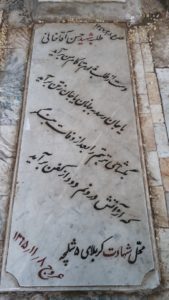 طلبه شهید حسن آقاخانی
دست از طلب ندارم تا کام من برآید
یا جان رسد به جانان یا جان ز تن برآید
بگشای تربتم را بعد از وفات بنگر
که از آتش درونم دود از کفن برآید
محل شهادت کربلای ۵ شلمچه
عروج ۸ / ۱۱ / ۱۳۶۵